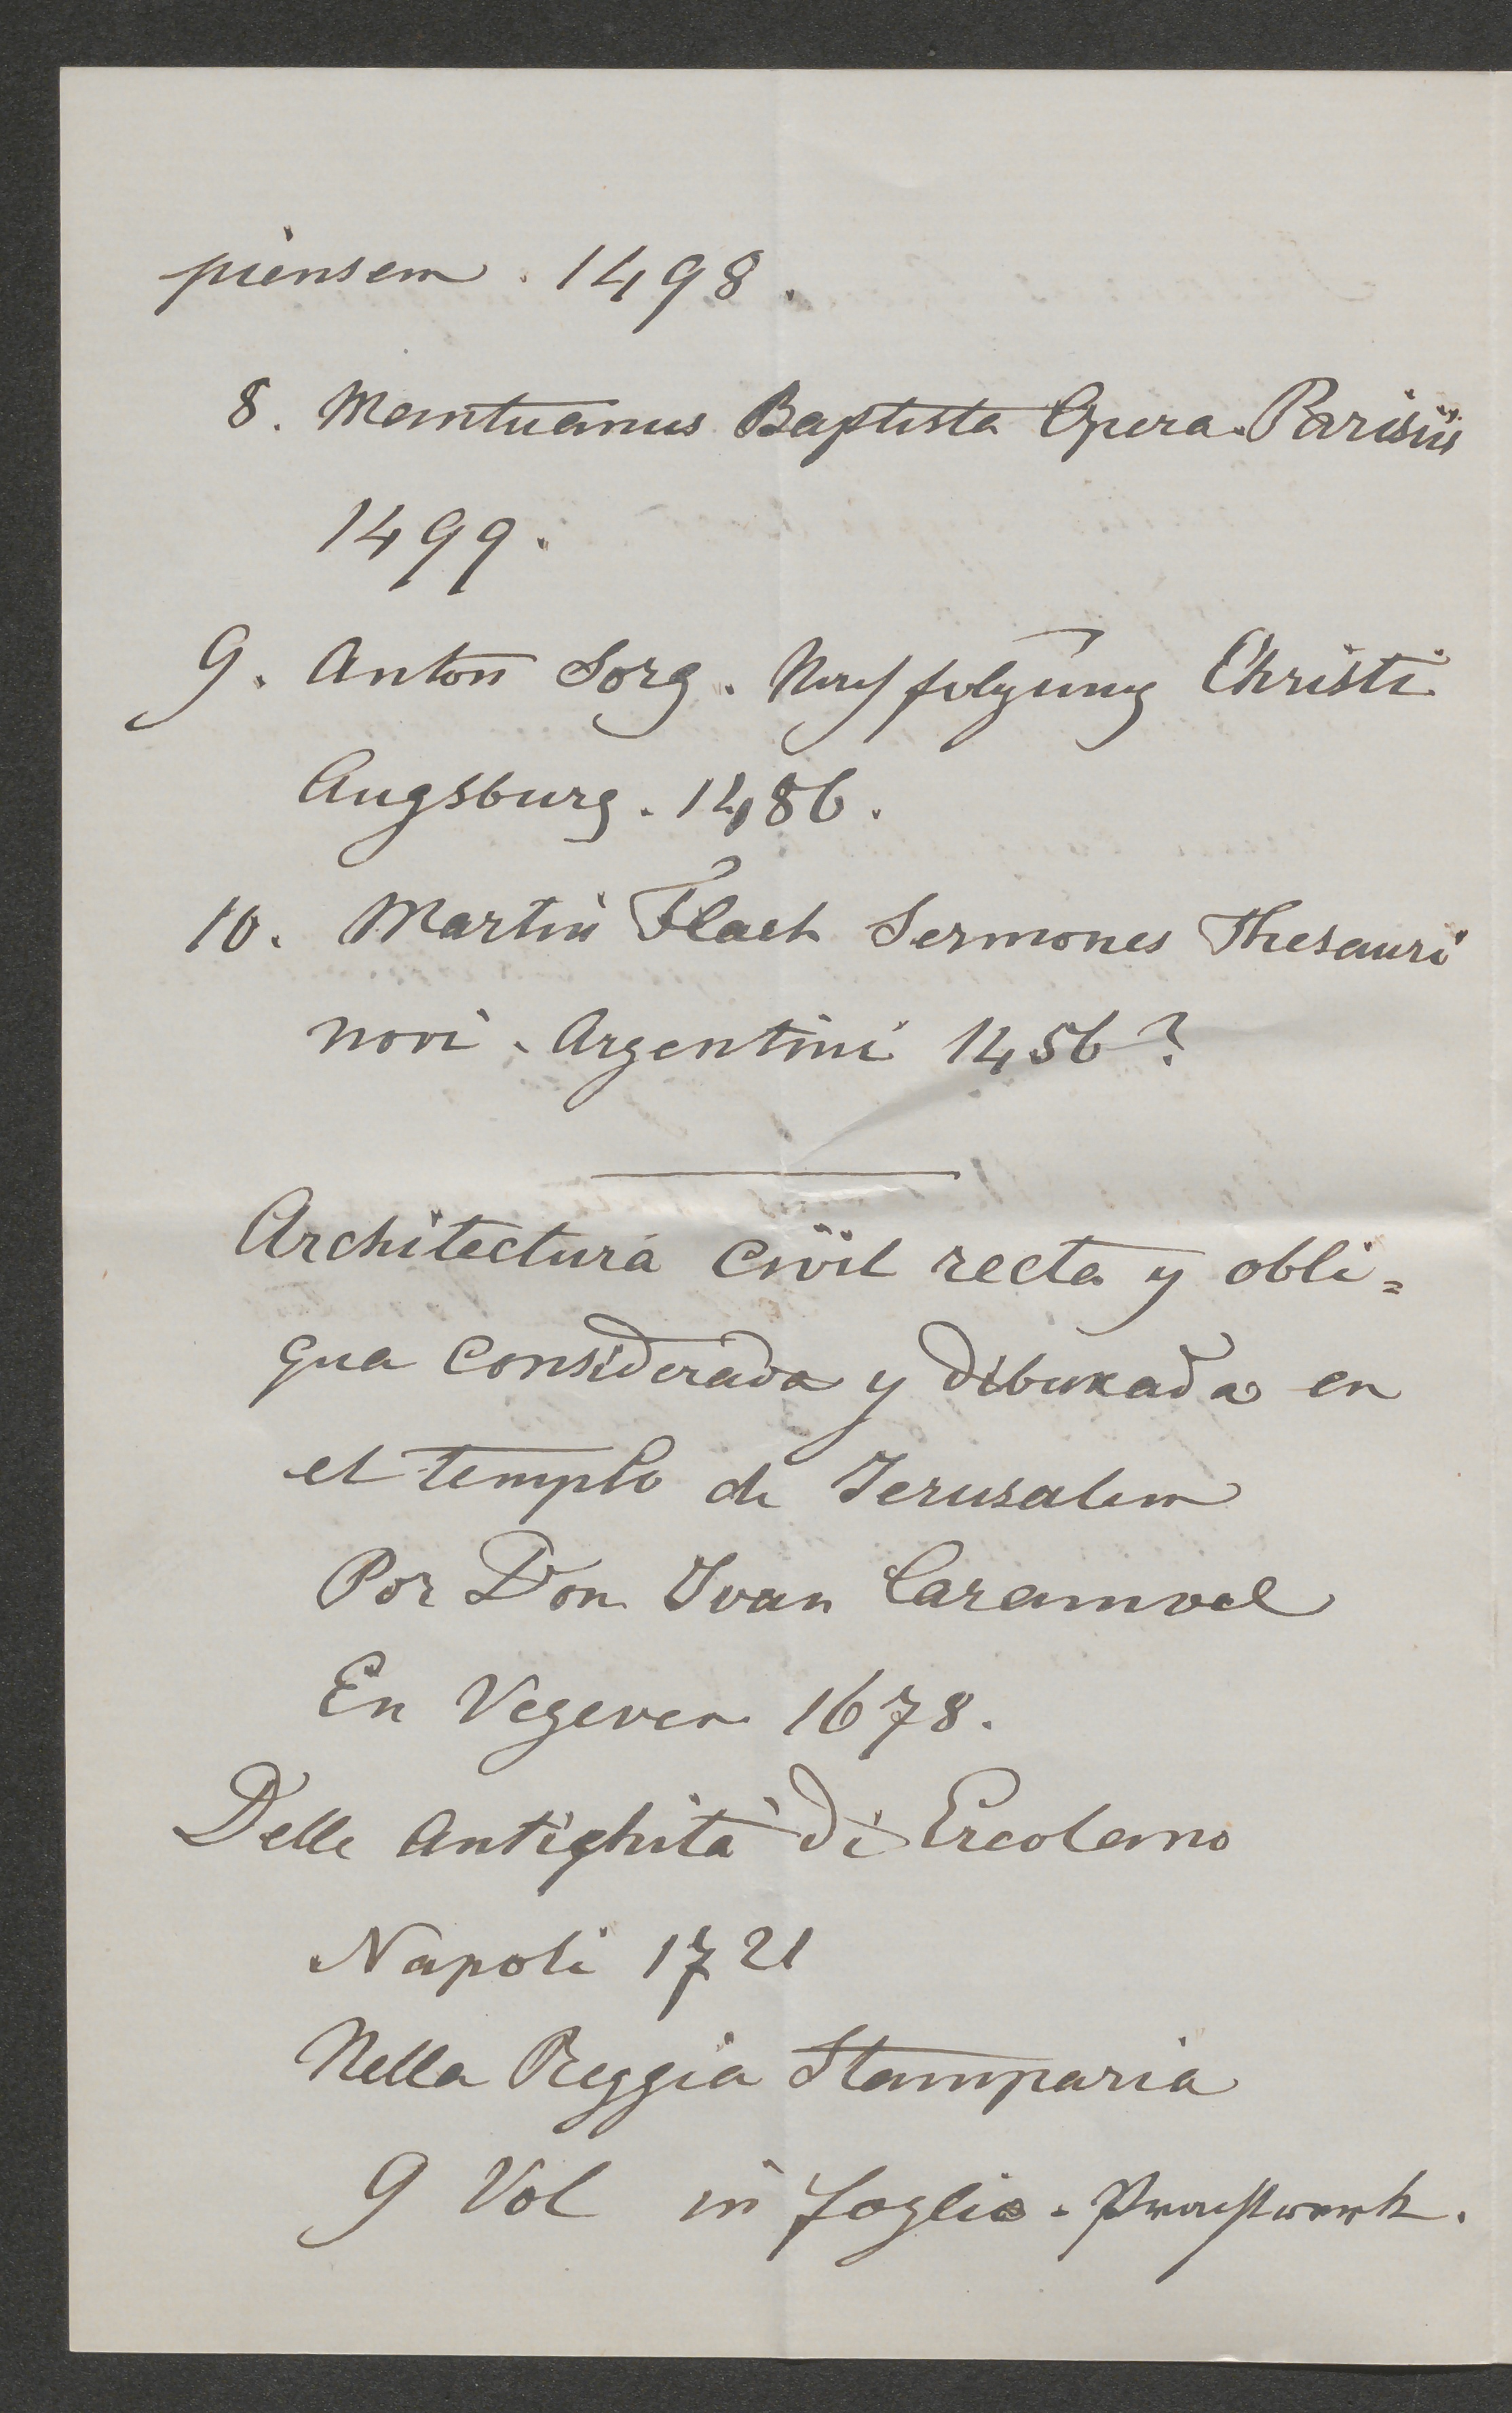 piensem. 1498.
8. Mantuanus Baptista Opera. Parisiis
1499.
9. Anton Sorg. Nachfolgung Christi
Augsburg. 1486.
10. Martin Flach Sermones Thesauri
novi. Argentini 1456?
Architectura civil recta y obli=
qua considerada y dibuxada en
el templo de Jerusalem
Por Don Ivan Caramvel
En Vegeven 1678.
Delle Antighità di Ercolano
Napoli 1721
Nella Reggia Stamparia
9 Vol in foglio. Prachtwerk.